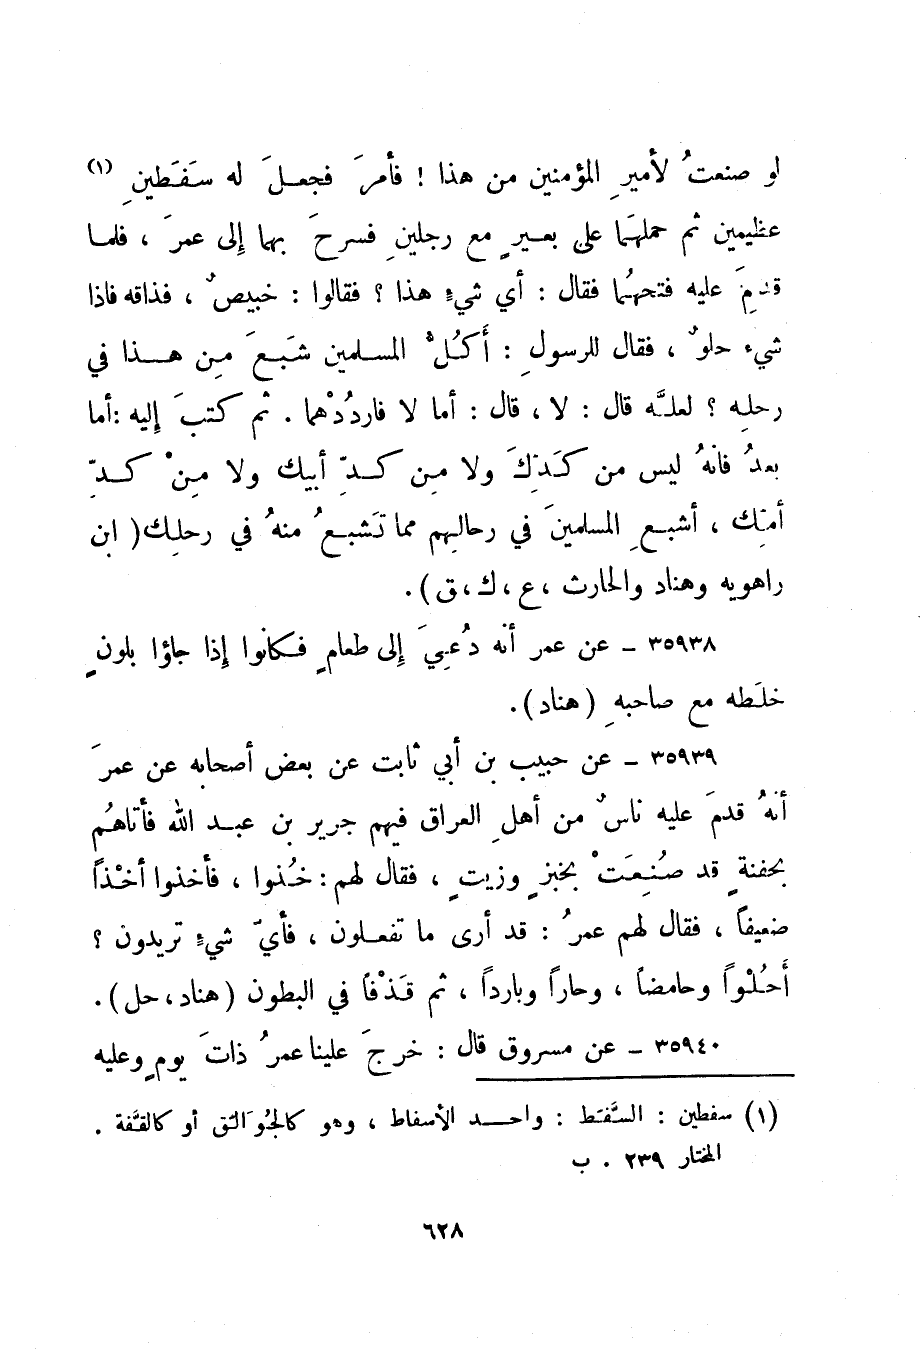 لو صنعتُ لأميرِ المؤمنين من هذا ! فأمرَ فجعلَ له سَفَطينِ (١)
عظيمين ثم حملهَما على بعيرٍ مع رجلينِ فسرحَ بهما إلى عمرَ ، فلما
قدمِ عليه فتحهُما فقال : أي شيءٍ هذا ؟ فقالوا : خبيصٌ ، فذاقه فاذا
شيء حلوٌ ، فقال للرسولِ : أَكُلُّ المسلمين شَبَعَ مِن هذا في
رحلِه ؟ لعلَّه قال : لا ، قال : أما لا فاردُدْهما . ثم كتبَ إليه :أما
بعدُ فانهُ ليس من كَدِّكَ ولا مِن كدِّ أبيك ولا مِنْ كدِّ
أمِّك ، أشبعِ المسلمينَ في رحالِهم مما تَشبعُ منهُ في رحلِك( ابن
راهويه وهناد والحارث ،ع ،ك ،ق ) .
٣٥٩٣٨ ـ عن عمر أنه دُعِيَ إلى طعامٍ فكانوا إذا جاؤا بلونٍ
خلَطه مع صاحبهِ (هناد) .
٣٥٩٣٩ ـ عن حبيب بن أبي ثابت عن بعض أصحابه عن عمرَ
أنهُ قدمَ عليه ناسٌ من أهلِ العراق فيهم جرير بن عبد الله فأتاهُم
بجفنةٍ قد صُنِعَتْ بخبزٍ وزيتٍ ، فقال لهم : خُذوا ، فأخذوا أخْذاً
ضعيفاً ، فقال لهم عمرُ : قد أرى ما تفعلون ، فأيّ شيءٍ تريدون ؟
أَحُلْواً وحامضاً ، وحاراً وبارداً ، ثم قَذْفاً في البطون (هناد ، حل) .
٣٥٩٤٠ ـ عن مسروق قال : خرجَ علينا عمرُ ذاتَ يومٍ وعليه
(١) سفطين : السَّفَط : واحد الأسفاط ، وهو كالجُوَالق أو كالقُفَّة .
المختار ٢٣٩ . ب
٦٢٨